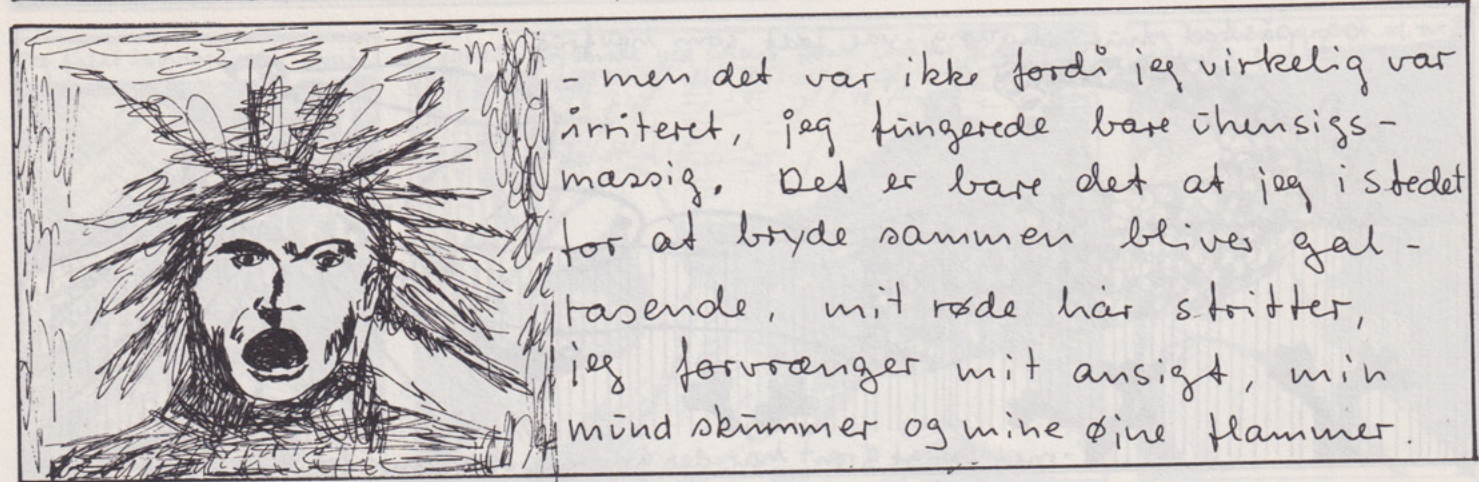 - men det var ikke fordi jeg virkelig var
irriteret, jeg fungerede bare uhensigs-
mæssig. Det er bare det at jeg i stedet
for at bryde sammen bliver gal-
rasende, mit røde hår stritter,
jeg forvrænger mit ansigt, min
mund skummer og mine øjne flammer.